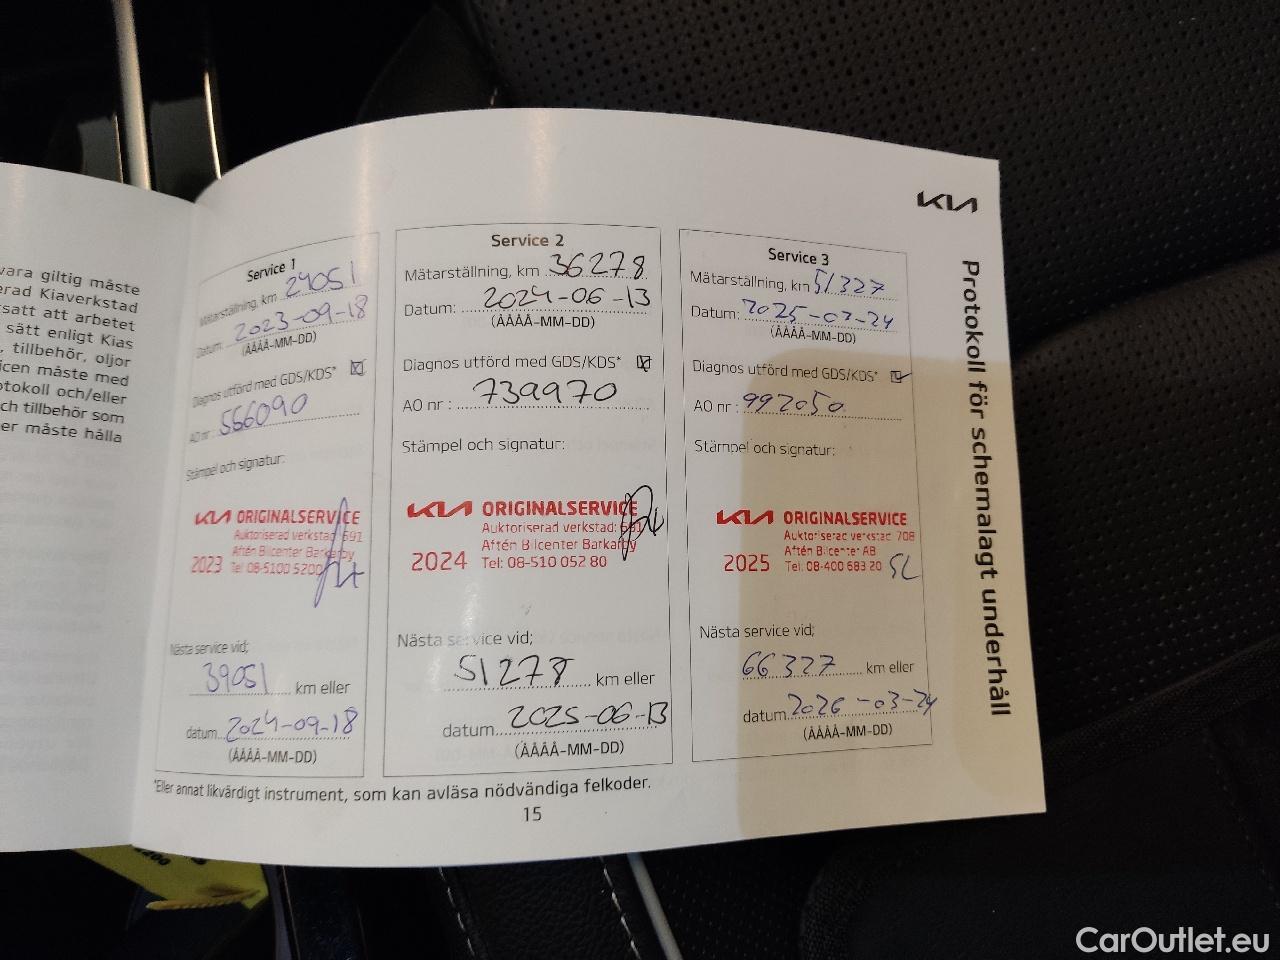 vara giltig måste
erad Kiaverkstad
rsatt att arbetet
sätt enligt Kias
, tillbehör, oljor
icen måste med
otokoll och/eller
ch tillbehör som
er måste hålla
KIA
Protokoll för schemalagt underhåll
Service 1
Mätarställning, km 24051
Datum: 2023-09-18
(ÅÅÅÅ-MM-DD)
Diagnos utförd med GDS/KDS*
AO nr: 566090
Stämpel och signatur:
KIA ORIGINALSERVICE
Auktoriserad verkstad 691
Aftén Bilcenter Barkarby
2023 Tel 08-5100 5200
Nästa service vid;
39051 km eller
datum 2024-09-18
(ÅÅÅÅ-MM-DD)
Service 2
Mätarställning, km 36278
Datum: 2024-06-13
(ÅÅÅÅ-MM-DD)
Diagnos utförd med GDS/KDS*
AO nr : 739970
Stämpel och signatur:
KIA ORIGINALSERVICE
Auktoriserad verkstad: 691
Aftén Bilcenter Barkarby
2024 Tel: 08-510 052 80
Nästa service vid;
51278 km eller
datum 2025-06-13
(ÅÅÅÅ-MM-DD)
Service 3
Mätarställning, km 51327
Datum: 2025-03-24
(ÅÅÅÅ-MM-DD)
Diagnos utförd med GDS/KDS*
AO nr : 992050
Stämpel och signatur:
KIA ORIGINALSERVICE
Auktoriserad verkstad 708
Aftén Bilcenter AB
2025 Tel: 08-400 683 20
SL
Nästa service vid;
66327 km eller
datum 2026-03-24
(ÅÅÅÅ-MM-DD)
*Eller annat likvärdigt instrument, som kan avläsa nödvändiga felkoder.
15
CarOutlet.eu